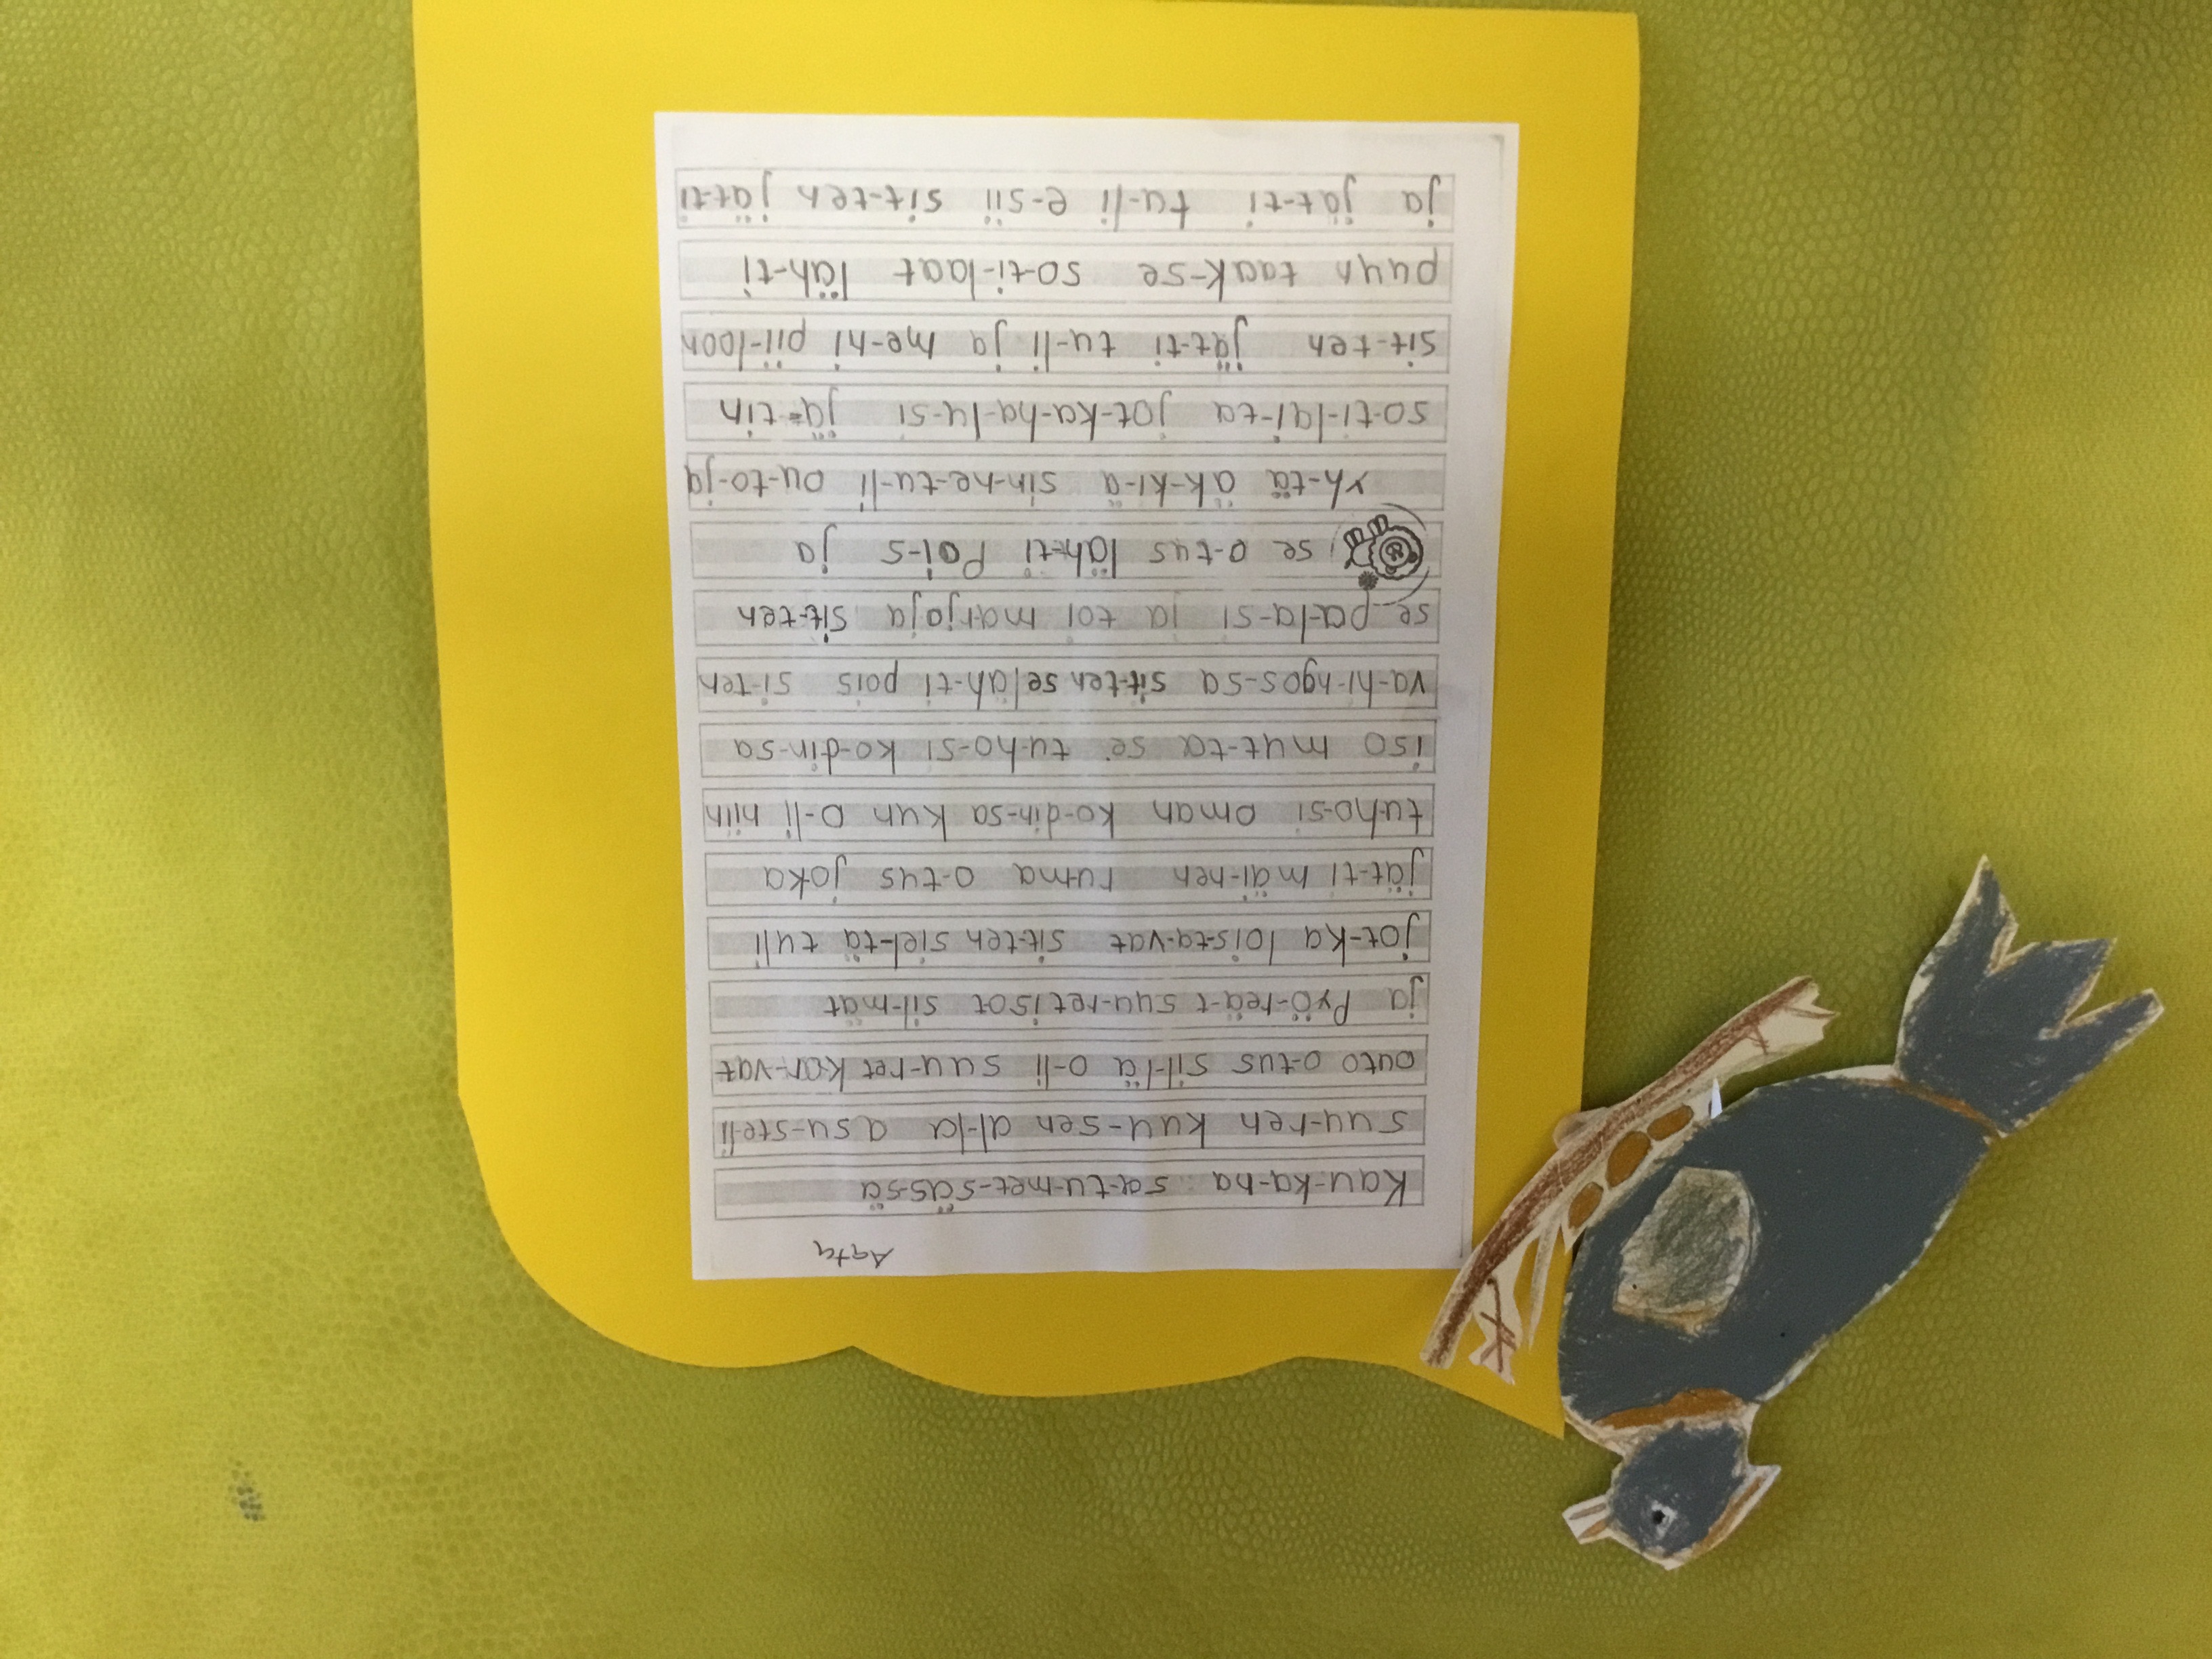 Aata
Kau-ka-na sa-tu-met-säs-sä
suu-ren kuu-sen al-la asu-ste-li
outo o-tus sil-lä o-li suu-ret kor-vat
ja Pyö-reä-t suu-ret isot sil-mät
jot-ka lois-ta-vat sit-ten siel-tä tuli
jät-ti mäi-nen ruma o-tus joka
tu-ho-si oman ko-din-sa kun o-li niin
iso mut-ta se tu-ho-si ko-din-sa
va-hi-ngos-sa sit-ten se läh-ti pois si-ten
se pa-la-si ja toi marjoja sit-ten
se o-tus läh-ti Poi-s ja
yh-tä äk-ki-ä sin-ne-tu-li ou-to-ja
so-ti-lai-ta jot-ka-ha-lu-si jä-tin
sit-ten jät-ti tu-li ja me-ni pii-loon
puun taak-se so-ti-laat läh-ti
ja jät-ti tu-li e-sii sit-ten jät-ti